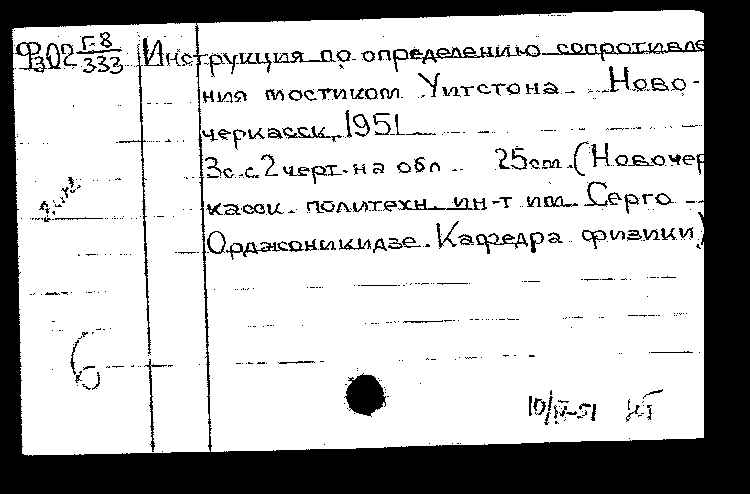 Ф302 Г-8/333 Инструкция по определению сопротивле
ния мостиком Уитстона. Ново-
черкасск, 1951
3с. с 2 черт. на обл. 25см. (Новочер
касск. политехн. ин-т им. Серго
Орджоникидзе. Кафедра физики)
б
10/IV-51 НТ